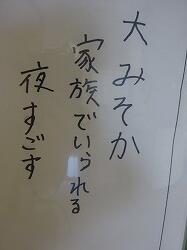 大みそか
家族でいられる
夜すごす